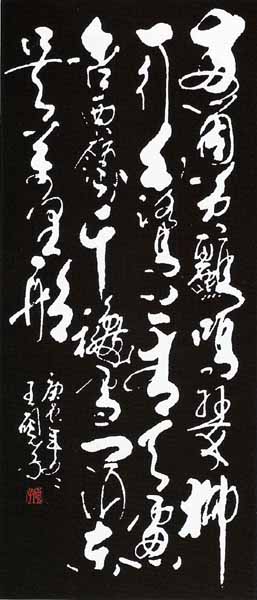 兩個黃鸝鳴翠柳
一行白鷺上青天窗
含西嶺千秋雪門泊東
吳萬里船